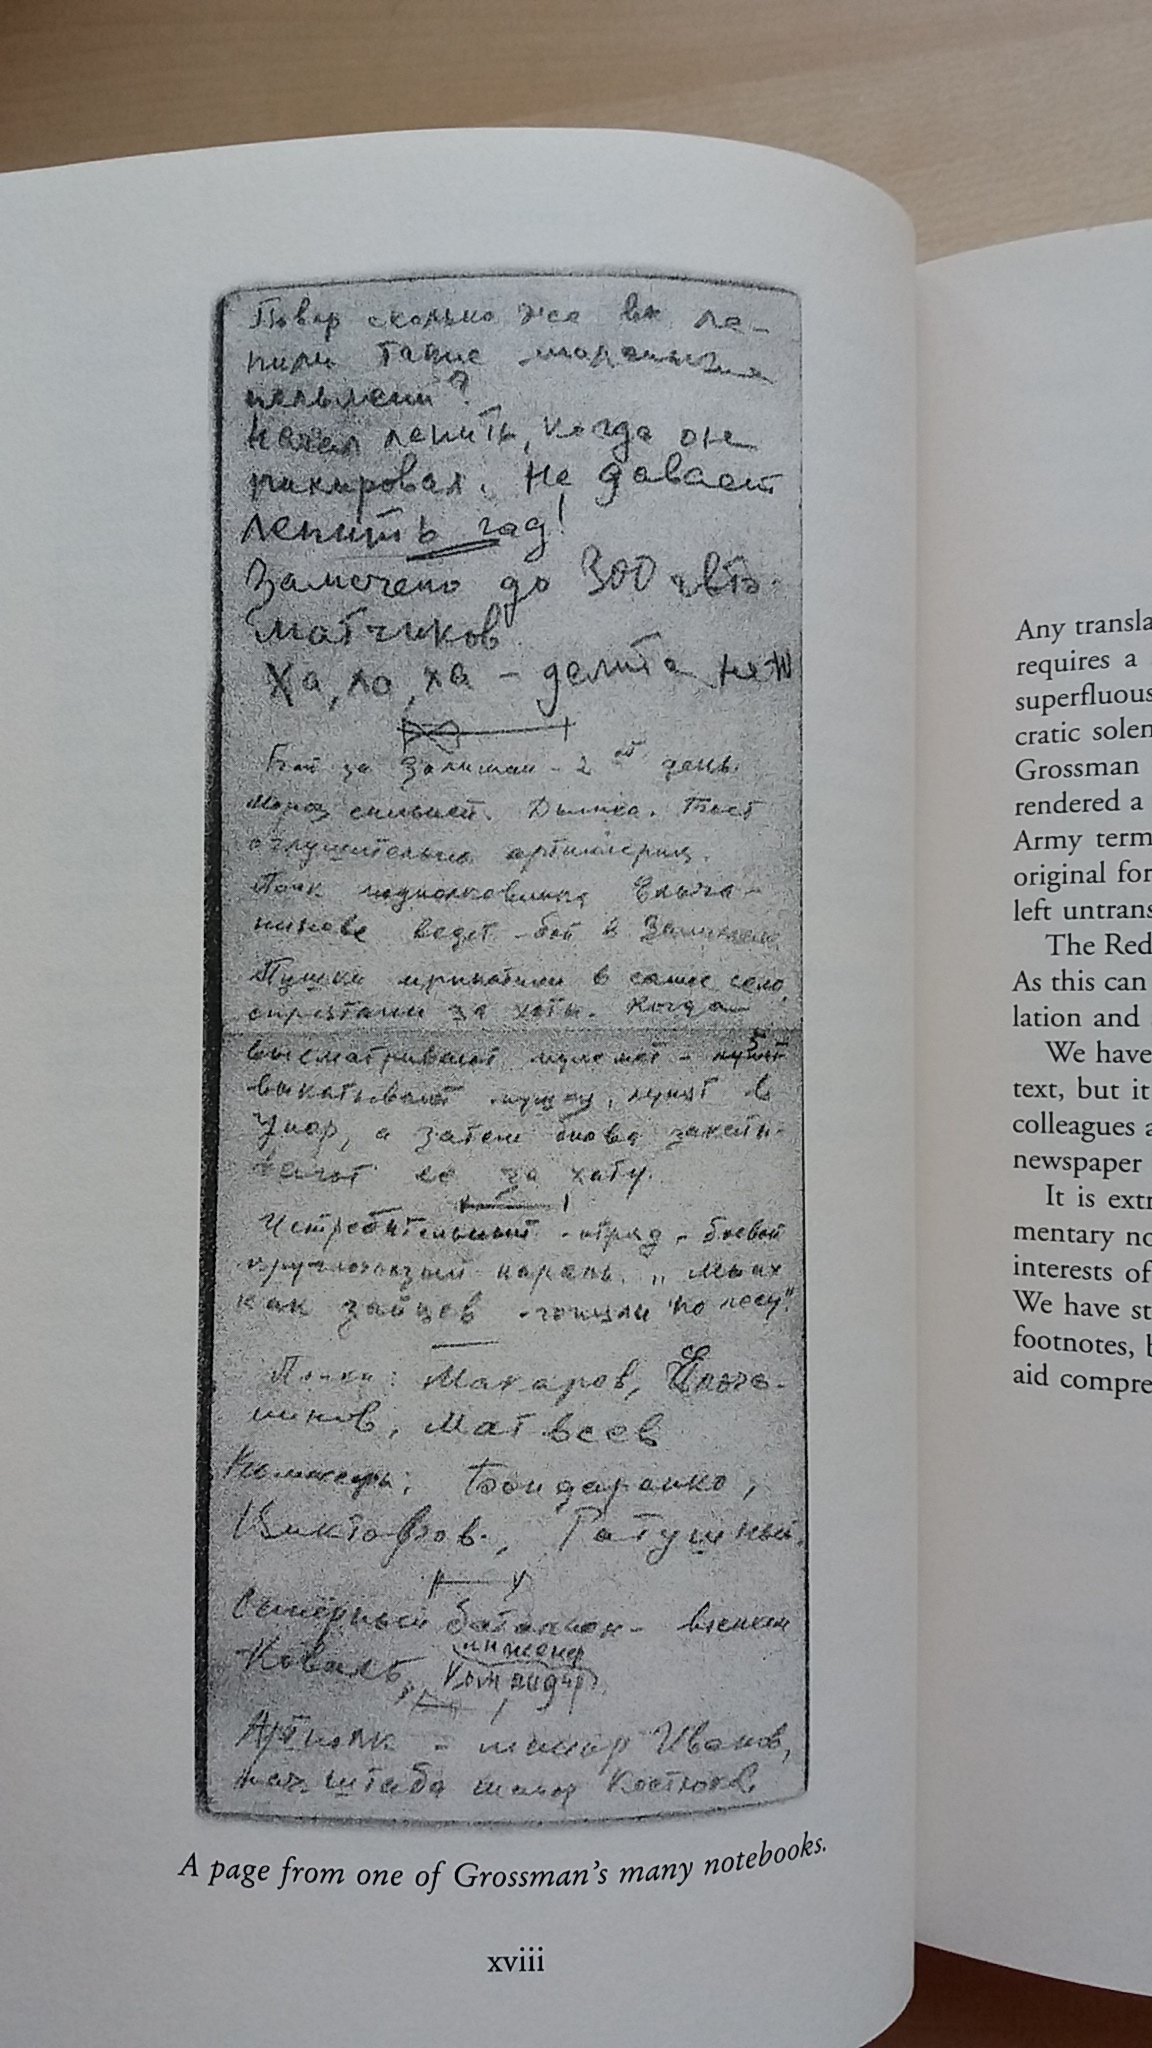 Повар сколько же вы ле-
пили такие
пельмени?
Начал лепить, когда он
пикировал. Не давает
лепить гад!
Замечено до 300 авто-
матчиков
Ха, хо, ха -
Бой за Залиман - 2 ой день.
Мороз сильный. Дымка. Бьет
оглушительно артиллерия.
Полк подполковника Ельча-
нинова ведет бой в Залимане
Пушки прикатили в само село,
спрятали за хаты. Когда
высматривают пулемет -
выкатывают пушку, лупят в
упор, а затем снова закаты-
вают ее за хату.
Истребительный отряд - боевой
народ. "Мы их
как зайцев гоняли по лесу".
Полки: Макаров, Ельча-
нинов, Матвеев
Комиссары: Бондаренко,
Ратушный.
Саперный батальон - военком
Коваль, инженер
командир
Артполк - майор Иванов,
нач штаба майор Костюков
A page from one of Grossman's many notebooks.
xviii
Any transla
requires a
superfluous
cratic solen
Grossman
rendered a
Army term
original for
left untrans
The Red
As this can
lation and
We have
text, but it
colleagues a
newspaper
It is extr
mentary no
interests of
We have st
footnotes, b
aid compre